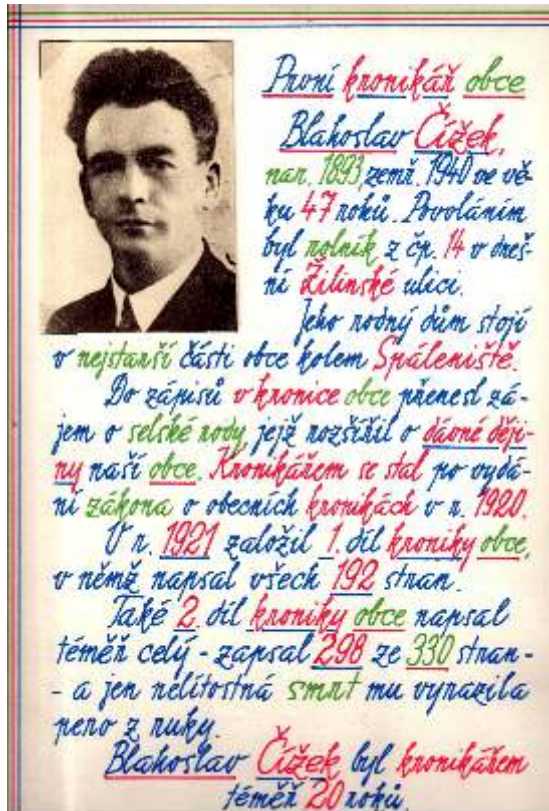 První kronikář obce
Blahoslav Čížek,
nar. 1893, zemř. 1940 ve vě-
ku 47 roků. Povoláním
byl rolník z čp. 14 v dneš-
ní Žilinské ulici.
Jeho rodný dům stojí
v nejstarší části obce kolem Spáleniště.
Do zápisů v kronice obce přenesl zá-
jem o selské rody, jejž rozšířil o dávné ději-
ny naší obce. Kronikářem se stal po vydá-
ní zákona o obecních kronikách v r. 1920.
V r. 1921 založil 1. díl kroniky obce,
v němž napsal všech 192 stran.
Také 2. díl kroniky obce napsal
téměř celý - zapsal 298 ze 330 stran -
- a jen nelítostná smrt mu vyrazila
pero z ruky.
Blahoslav Čížek byl kronikářem
téměř 20 roků.